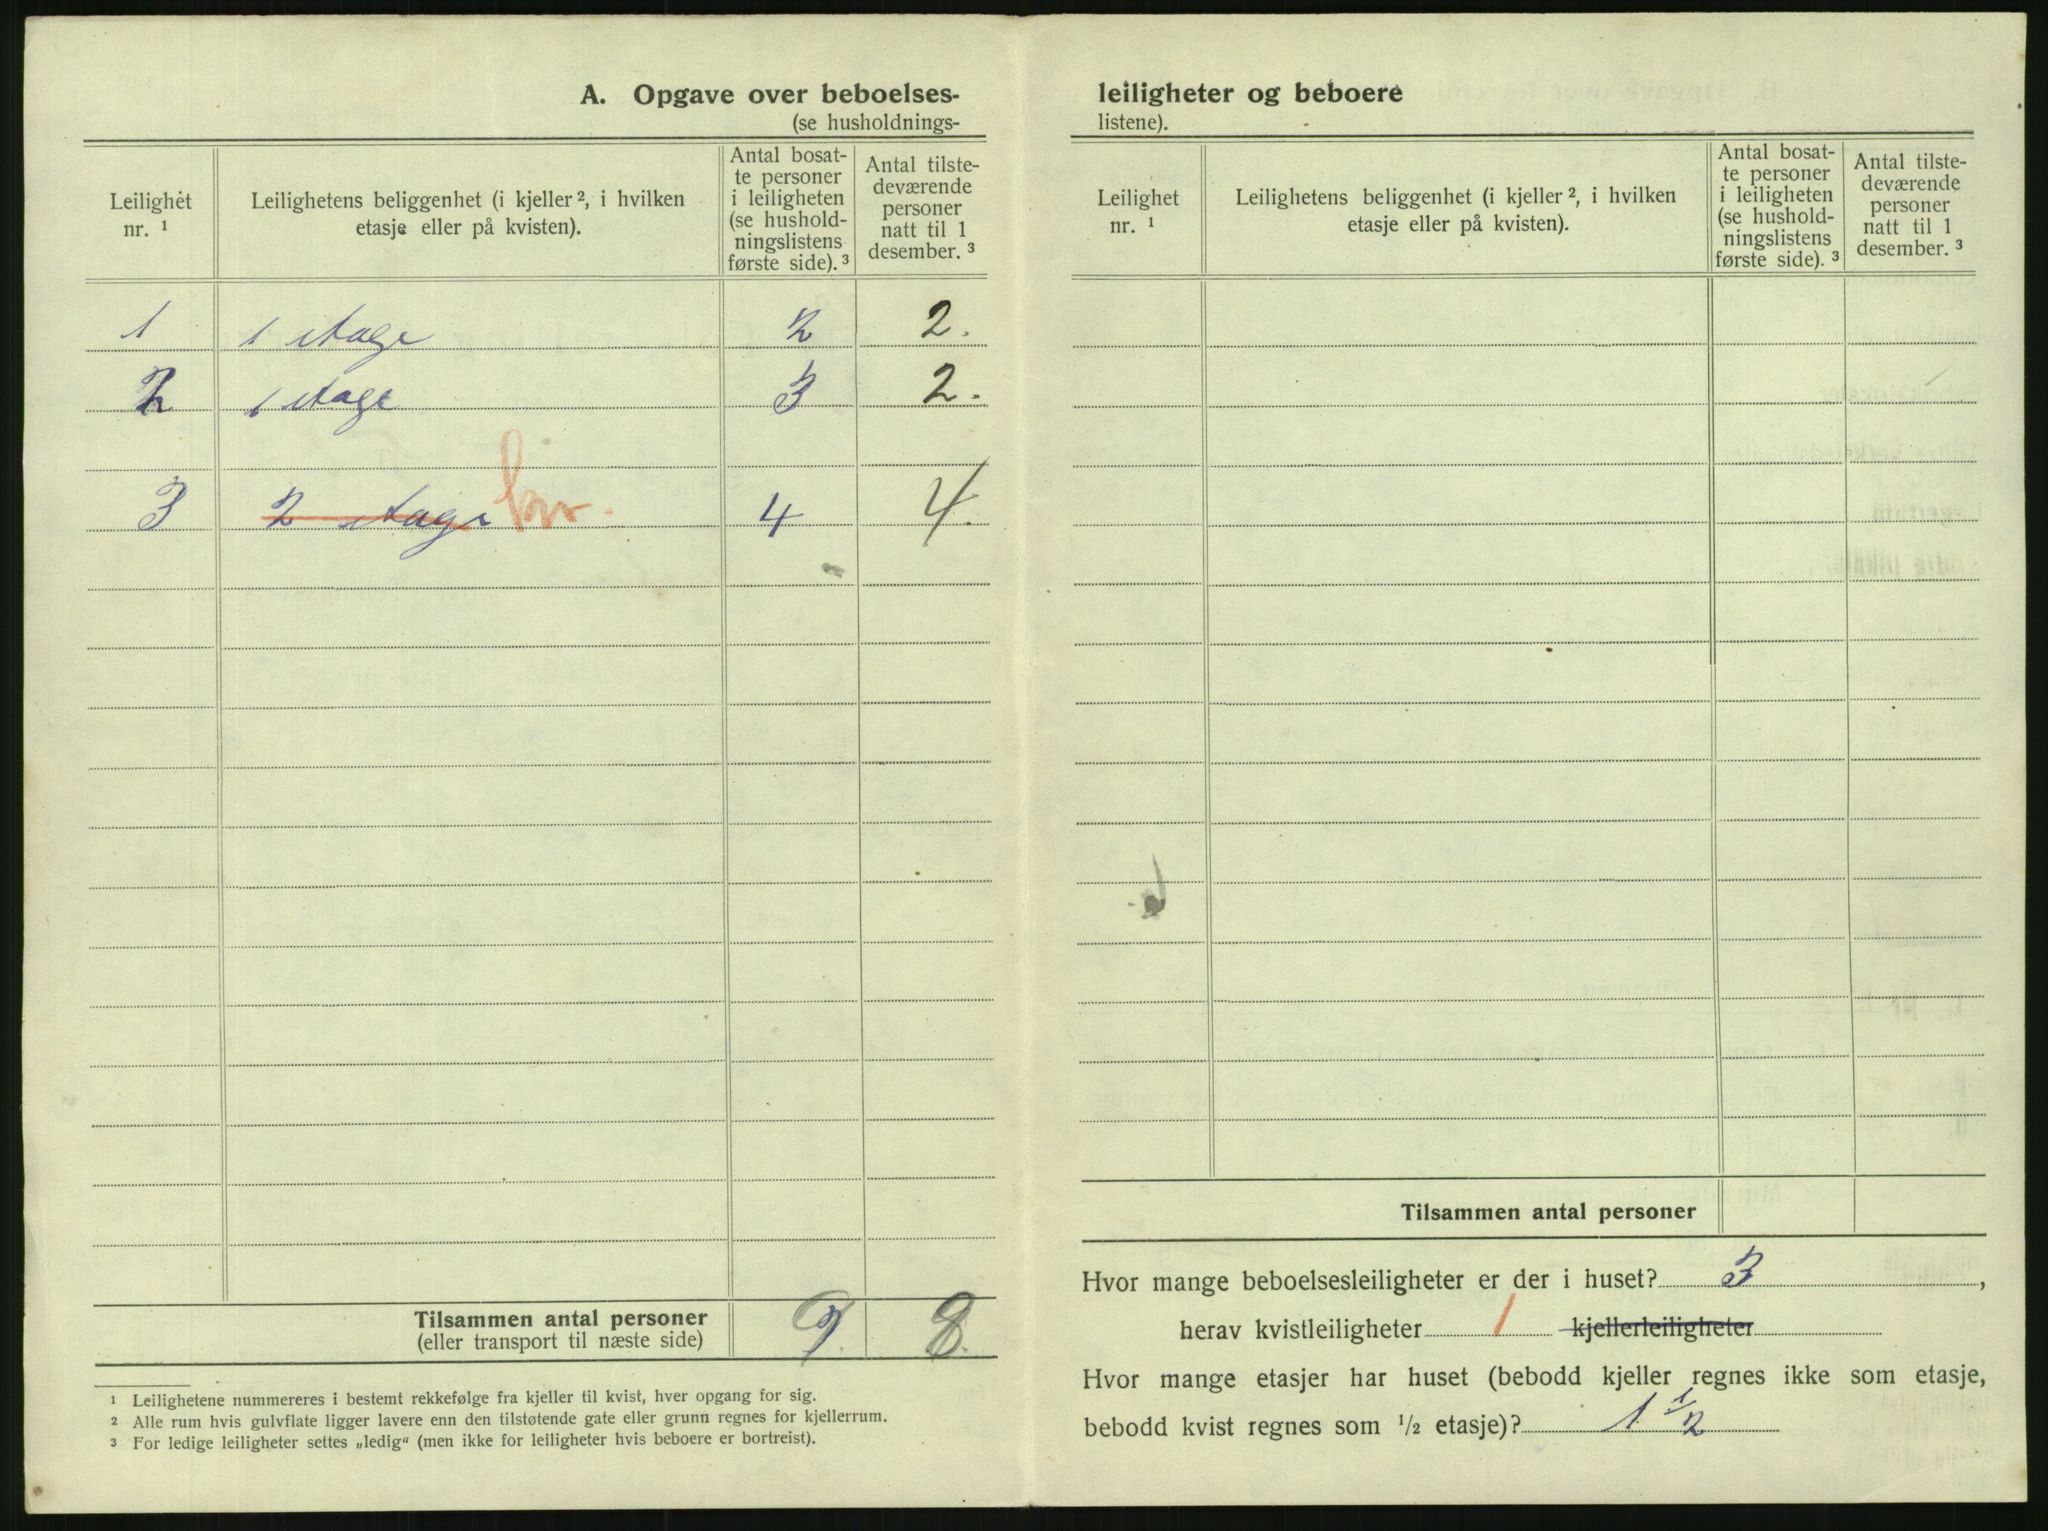 A. Opgave over beboelses-
(se husholdnings-
Leilighet nr. ¹
Leilighetens beliggenhet (i kjeller ², i hvilken etasje eller på kvisten).
Antal bosat-te personer i leiligheten (se hushold-ningslistens første side). ³
Antal tilste-deværende personer natt til 1 desember. ³
1 1 etage 2 2.
2 1 etage 3 2.
3 2 etage kv. 4 4.
Tilsammen antal personer 9. 8.
(eller transport til næste side)
¹ Leilighetene nummereres i bestemt rekkefølge fra kjeller til kvist, hver opgang for sig.
² Alle rum hvis gulvflate ligger lavere enn den tilstøtende gate eller grunn regnes for kjellerrum.
³ For ledige leiligheter settes „ledig“ (men ikke for leiligheter hvis beboere er bortreist).
leiligheter og beboere
listene).
Leilighet nr. ¹
Leilighetens beliggenhet (i kjeller ², i hvilken etasje eller på kvisten).
Antal bosat-te personer i leiligheten (se hushold-ningslistens første side). ³
Antal tilste-deværende personer natt til 1 desember. ³
Tilsammen antal personer
Hvor mange beboelsesleiligheter er der i huset? 3,
herav kvistleiligheter 1 kjellerleiligheter
Hvor mange etasjer har huset (bebodd kjeller regnes ikke som etasje,
bebodd kvist regnes som ½ etasje)? 1 ½